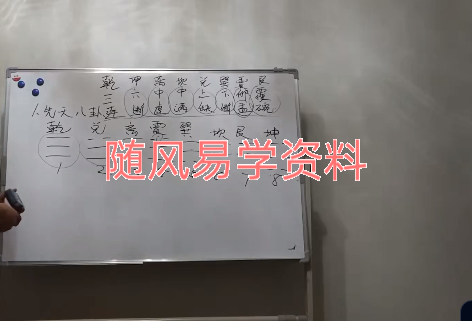 乾 坤 离 坎 兑 巽 震 艮
三 六 中 中 上 下 仰 覆
连 断 虚 满 缺 断 盂 碗
1.先天八卦
乾 兑 离 震 巽 坎 艮 坤
1 2 7 8
随风易学资料